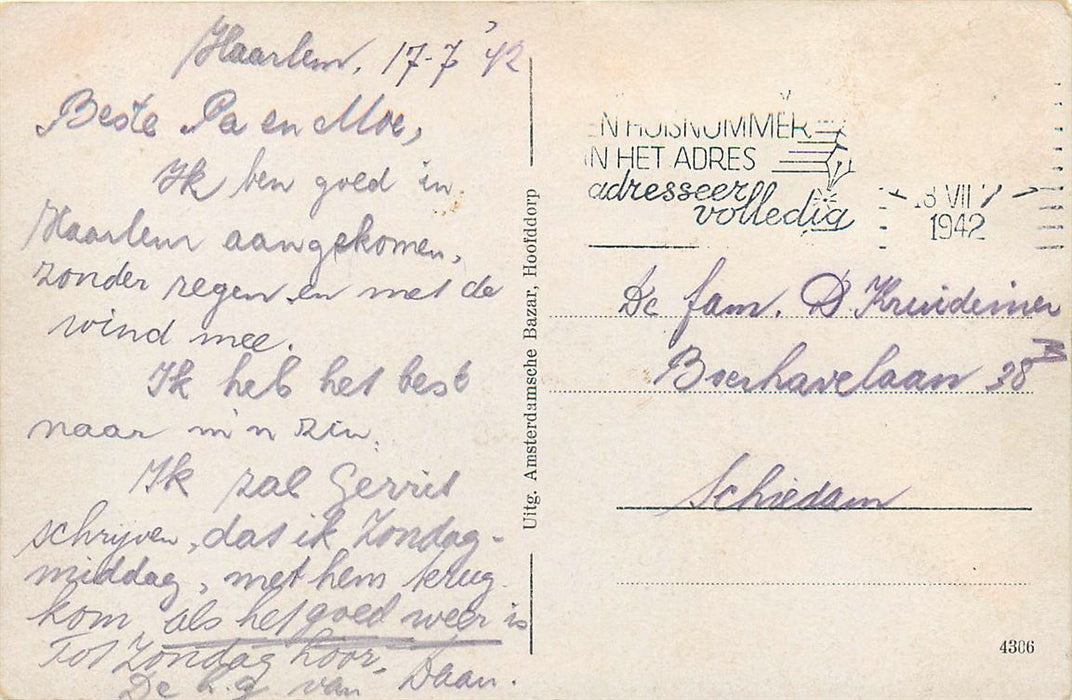 Haarlem, 17-7 '42
Beste Pa en Moe,
Ik ben goed in
Haarlem aangekomen,
zonder regen en met de
wind mee.
Ik heb het best
naar m'n zin.
Ik zal Gerrit
schrijven, dat ik Zondag-
middag, met hem terug
kom als het goed weer is
Tot Zondag hoor,
De h.g van Daan.
Uitg. Amsterdamsche Bazar, Hoofddorp
EN HUISNUMMER
IN HET ADRES
adresseer
volledig
18 VII
1942
De fam. D. Kruidenier
Boerhavelaan 38
B
Schiedam
4306